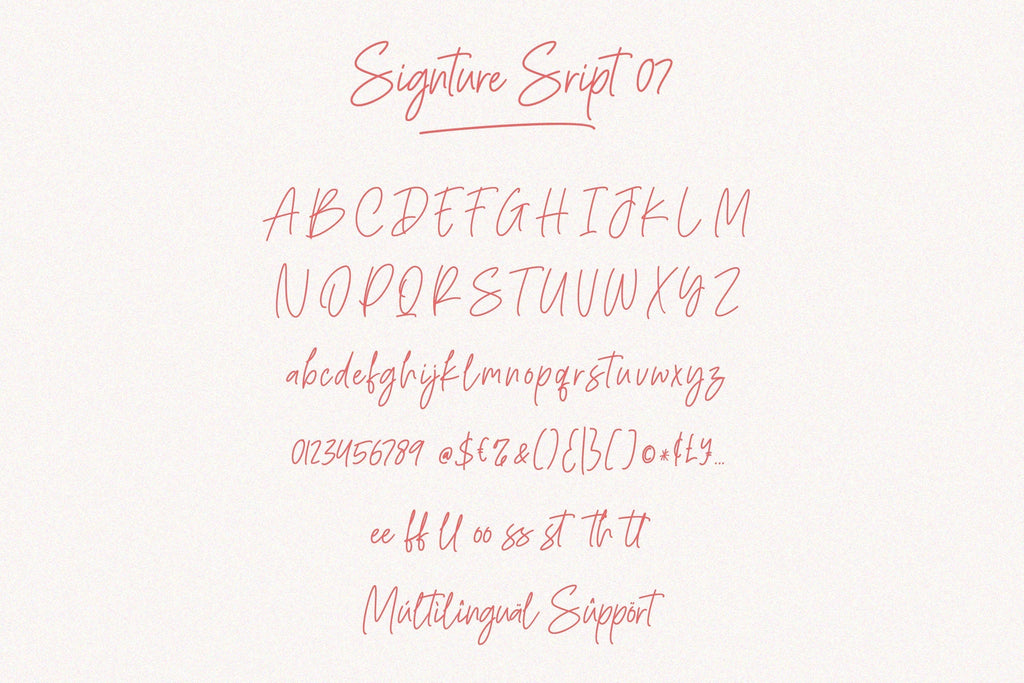 Signture Sript 07
ABCDEFGHIJKLM
NOPQRSTUVWXYZ
abcdefghijklmnopqrstuvwxyz
0123456789 @$€%&(){|}[]©*¢£¥...
ee ff ll oo ss st th tt
Múltìlînguäl Sûppört